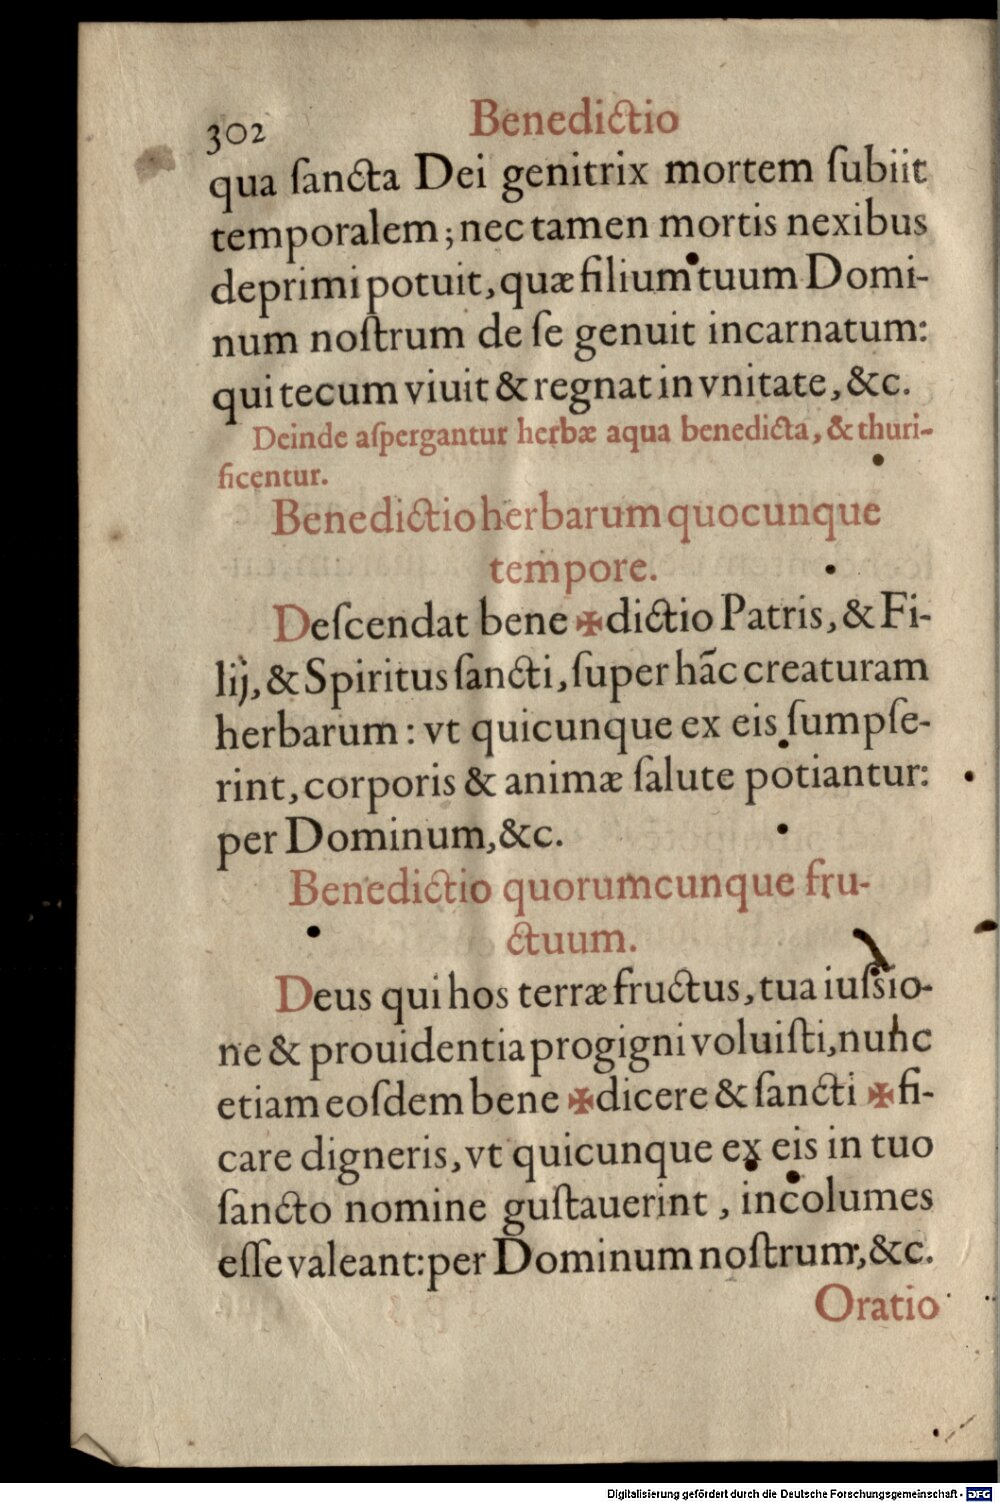 302 Benedictio
qua ſancta Dei genitrix mortem ſubiit
temporalem; nec tamen mortis nexibus
deprimi potuit, quæ filium tuum Domi-
num noſtrum de ſe genuit incarnatum:
qui tecum viuit & regnat in vnitate, &c.
Deinde aſpergantur herbæ aqua benedicta, & thuri-
ficentur.
Benedictio herbarum quocunque
tempore.
Deſcendat bene ✠ dictio Patris, & Fi-
lij, & Spiritus ſancti, ſuper hãc creaturam
herbarum: vt quicunque ex eis ſumpſe-
rint, corporis & animæ ſalute potiantur:
per Dominum, &c.
Benedictio quorumcunque fru-
ctuum.
Deus qui hos terræ fructus, tua iuſsio-
ne & prouidentia progigni voluiſti, nunc
etiam eoſdem bene ✠ dicere & ſancti ✠ fi-
care digneris, vt quicunque ex eis in tuo
ſancto nomine guſtauerint, incolumes
eſſe valeant: per Dominum noſtrum, &c.
Oratio
Digitalisierung gefördert durch die Deutsche Forschungsgemeinschaft - DFG